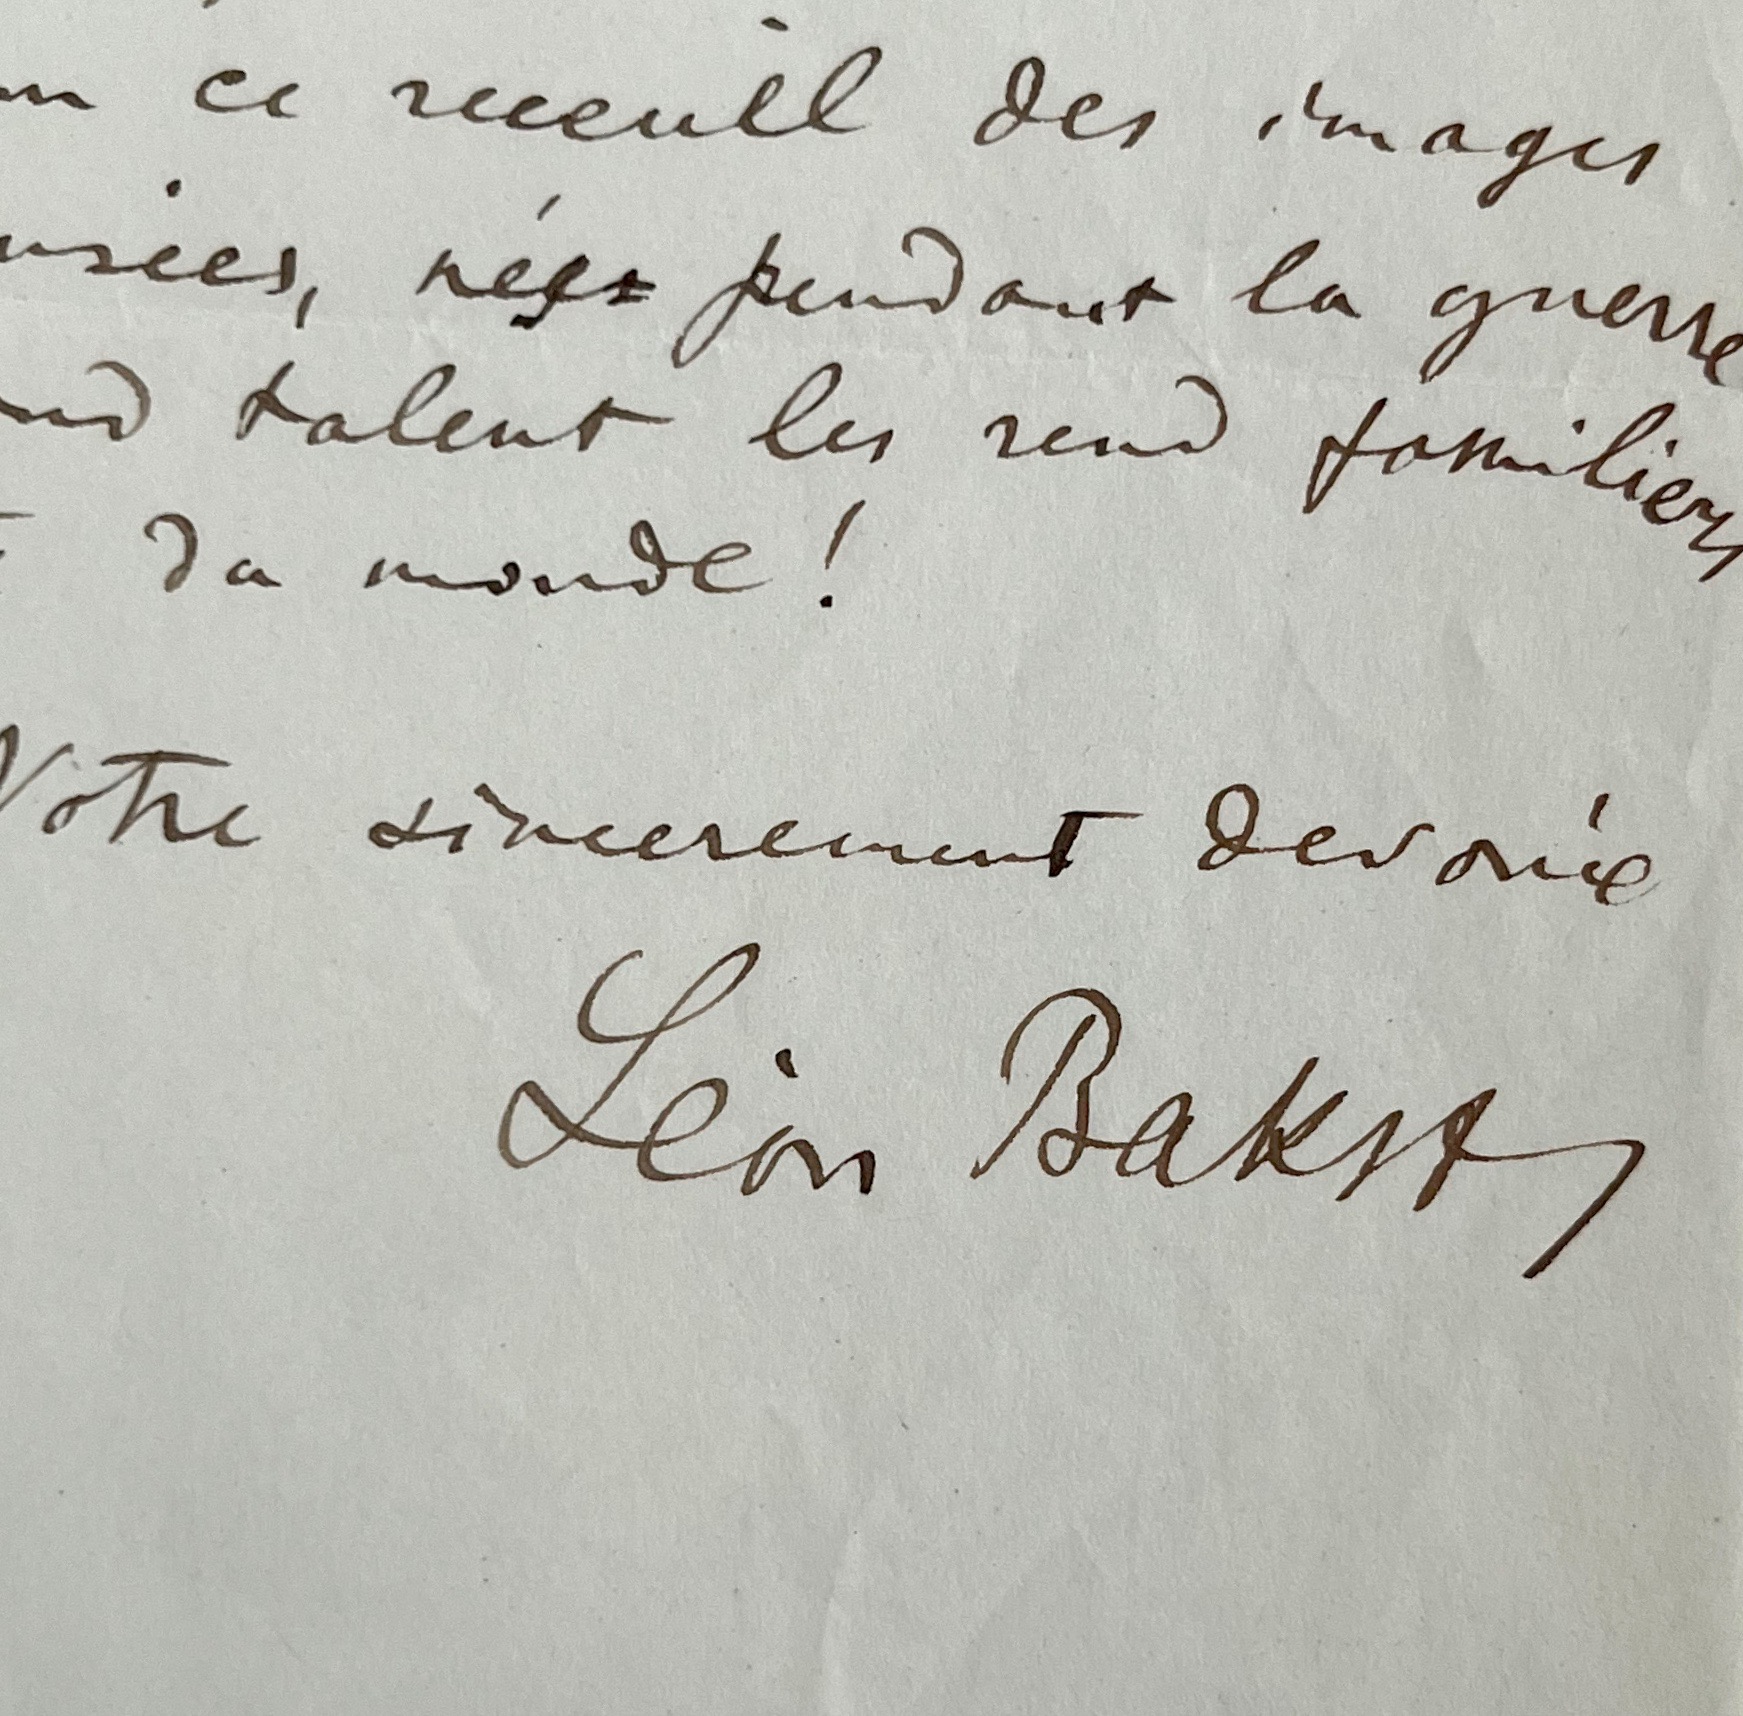 ce recueuil des images
nées pendant la guerre
talent les rend familiers
du monde!
Votre sincerement devoué
Léon Bakst